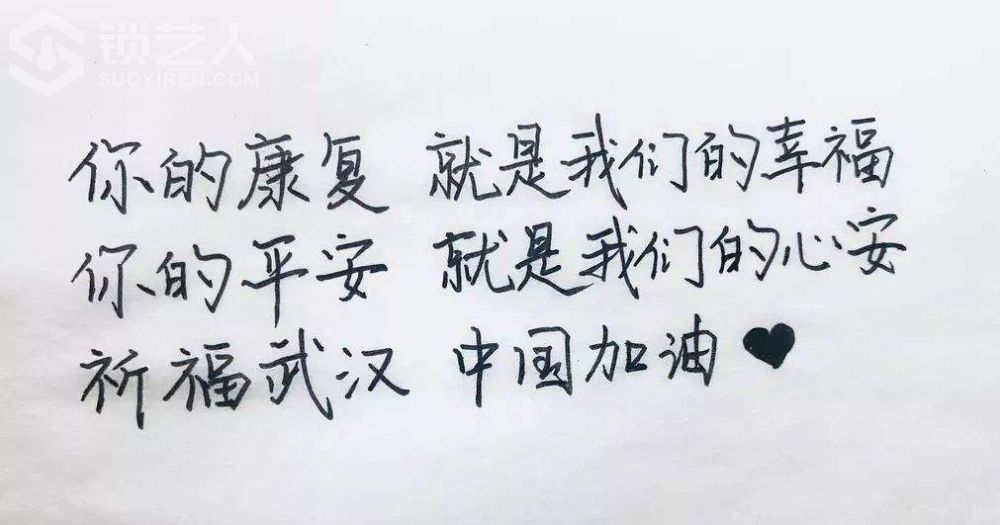 锁艺人
SUOYIREN.COM
你的康复 就是我们的幸福
你的平安 就是我们的心安
祈福武汉 中国加油♥